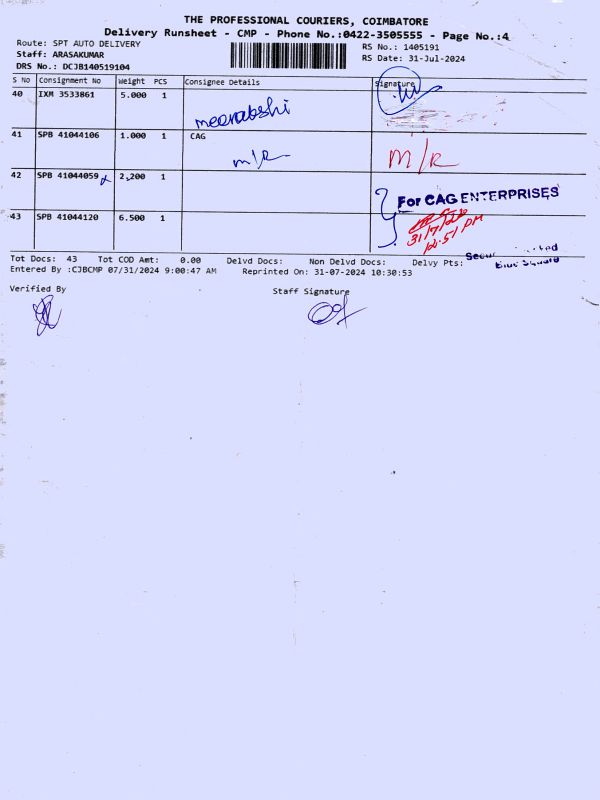 THE PROFESSIONAL COURIERS, COIMBATORE
Delivery Runsheet - CMP - Phone No.:0422-3505555 - Page No.:4
Route: SPT AUTO DELIVERY
RS No.: 1405191
Staff: ARASAKUMAR
RS Date: 31-Jul-2024
DRS No.: DCJB140519104
S No Consignment No Weight PCS Consignee Details Signature
40 IXM 3533861 5.000 1
meenakshi
41 SPB 41044106 1.000 1 CAG
m/R M/R
42 SPB 41044059 2,200 1
For CAG ENTERPRISES
43 SPB 41044120 6.500 1
31/7/24
12:51 PM
Tot Docs: 43 Tot COD Amt: 0.00 Delvd Docs: Non Delvd Docs: Delvy Pts:
Blue Square
Entered By :CJBCMP 07/31/2024 9:00:47 AM Reprinted On: 31-07-2024 10:30:53
Verified By Staff Signature